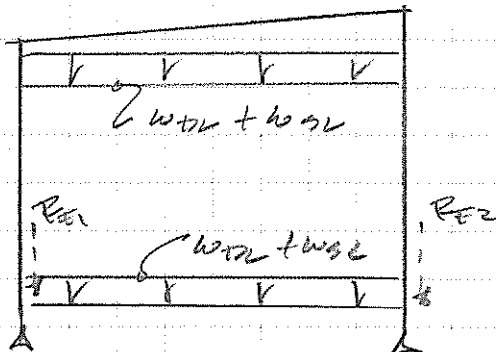 W_DL + W_SL
P_E1
P_E2
W_DL + W_SL